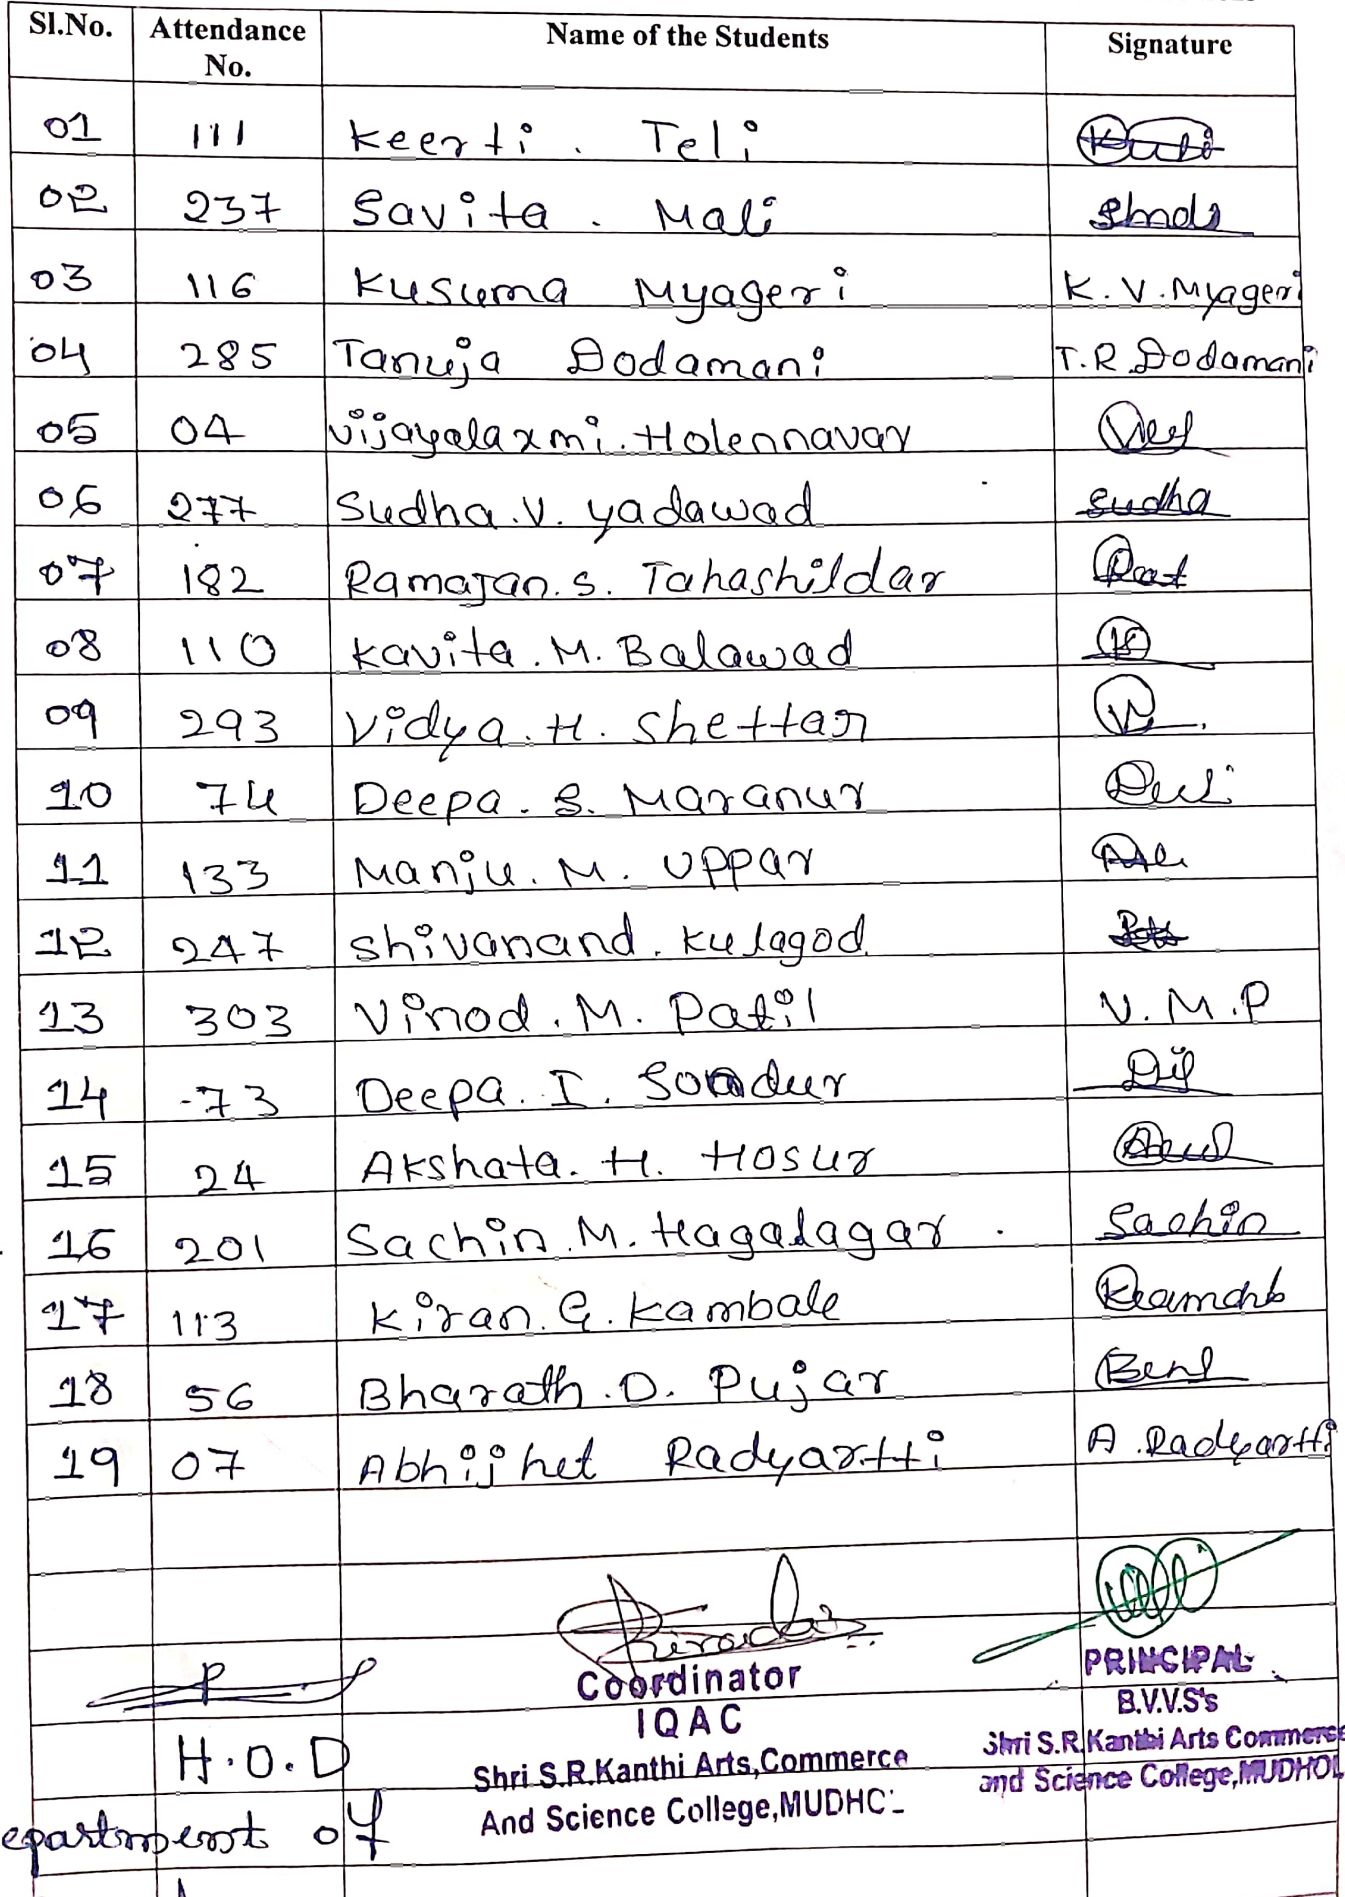 Sl.No. Attendance No. Name of the Students Signature
01 111 Keerti . Teli
02 237 Savita . Mali
03 116 Kusuma Myageri K.V.Myageri
04 285 Tanuja Dodamani T.R.Dodamani
05 04 Vijayalaxmi.Holennavar
06 277 Sudha.V. yadawad Sudha
07 182 Ramajan.S. Tahashildar
08 110 Kavita.M. Balawad
09 293 Vidya.H. Shettar
10 74 Deepa.S. Maranur
11 133 Manju.M. Uppar
12 247 Shivanand.Kulagod
13 303 Vinod.M. Patil V.M.P
14 73 Deepa.I.
15 24 Akshata.H. Hosur
16 201 Sachin.M.Hagalagar. Sachin
17 113 Kiran.G.Kambale
18 56 Bharath.D. Pujar
19 07 Abhijhet Radyartti A.Radyartti
Coordinator
IQAC
Shri S.R.Kanthi Arts,Commerce
And Science College,
PRINCIPAL
B.V.V.S's
Shri S.R.Kanthi Arts Commerce
and Science College,MUDHOL
H.O.D
epartment of